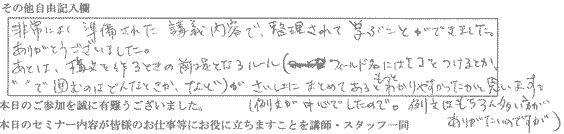 その他自由記入欄
非常によく準備された講義内容で、整理されて学ぶことができました。
ありがとうございました。
あとは、構文を作るときの前提となるルール(フィールド名には[ ]をつけるとか、
" "で囲むのはどんなときか、など)がさいしょにまとめてあるともっとわかりやすかったかと思います。
(例文が中心でしたので。例文はもちろん多い方が
ありがたいのですが)
本日のご参加を誠に有難うございました。
本日のセミナー内容が皆様のお仕事等にお役に立ちますことを講師・スタッフ一同